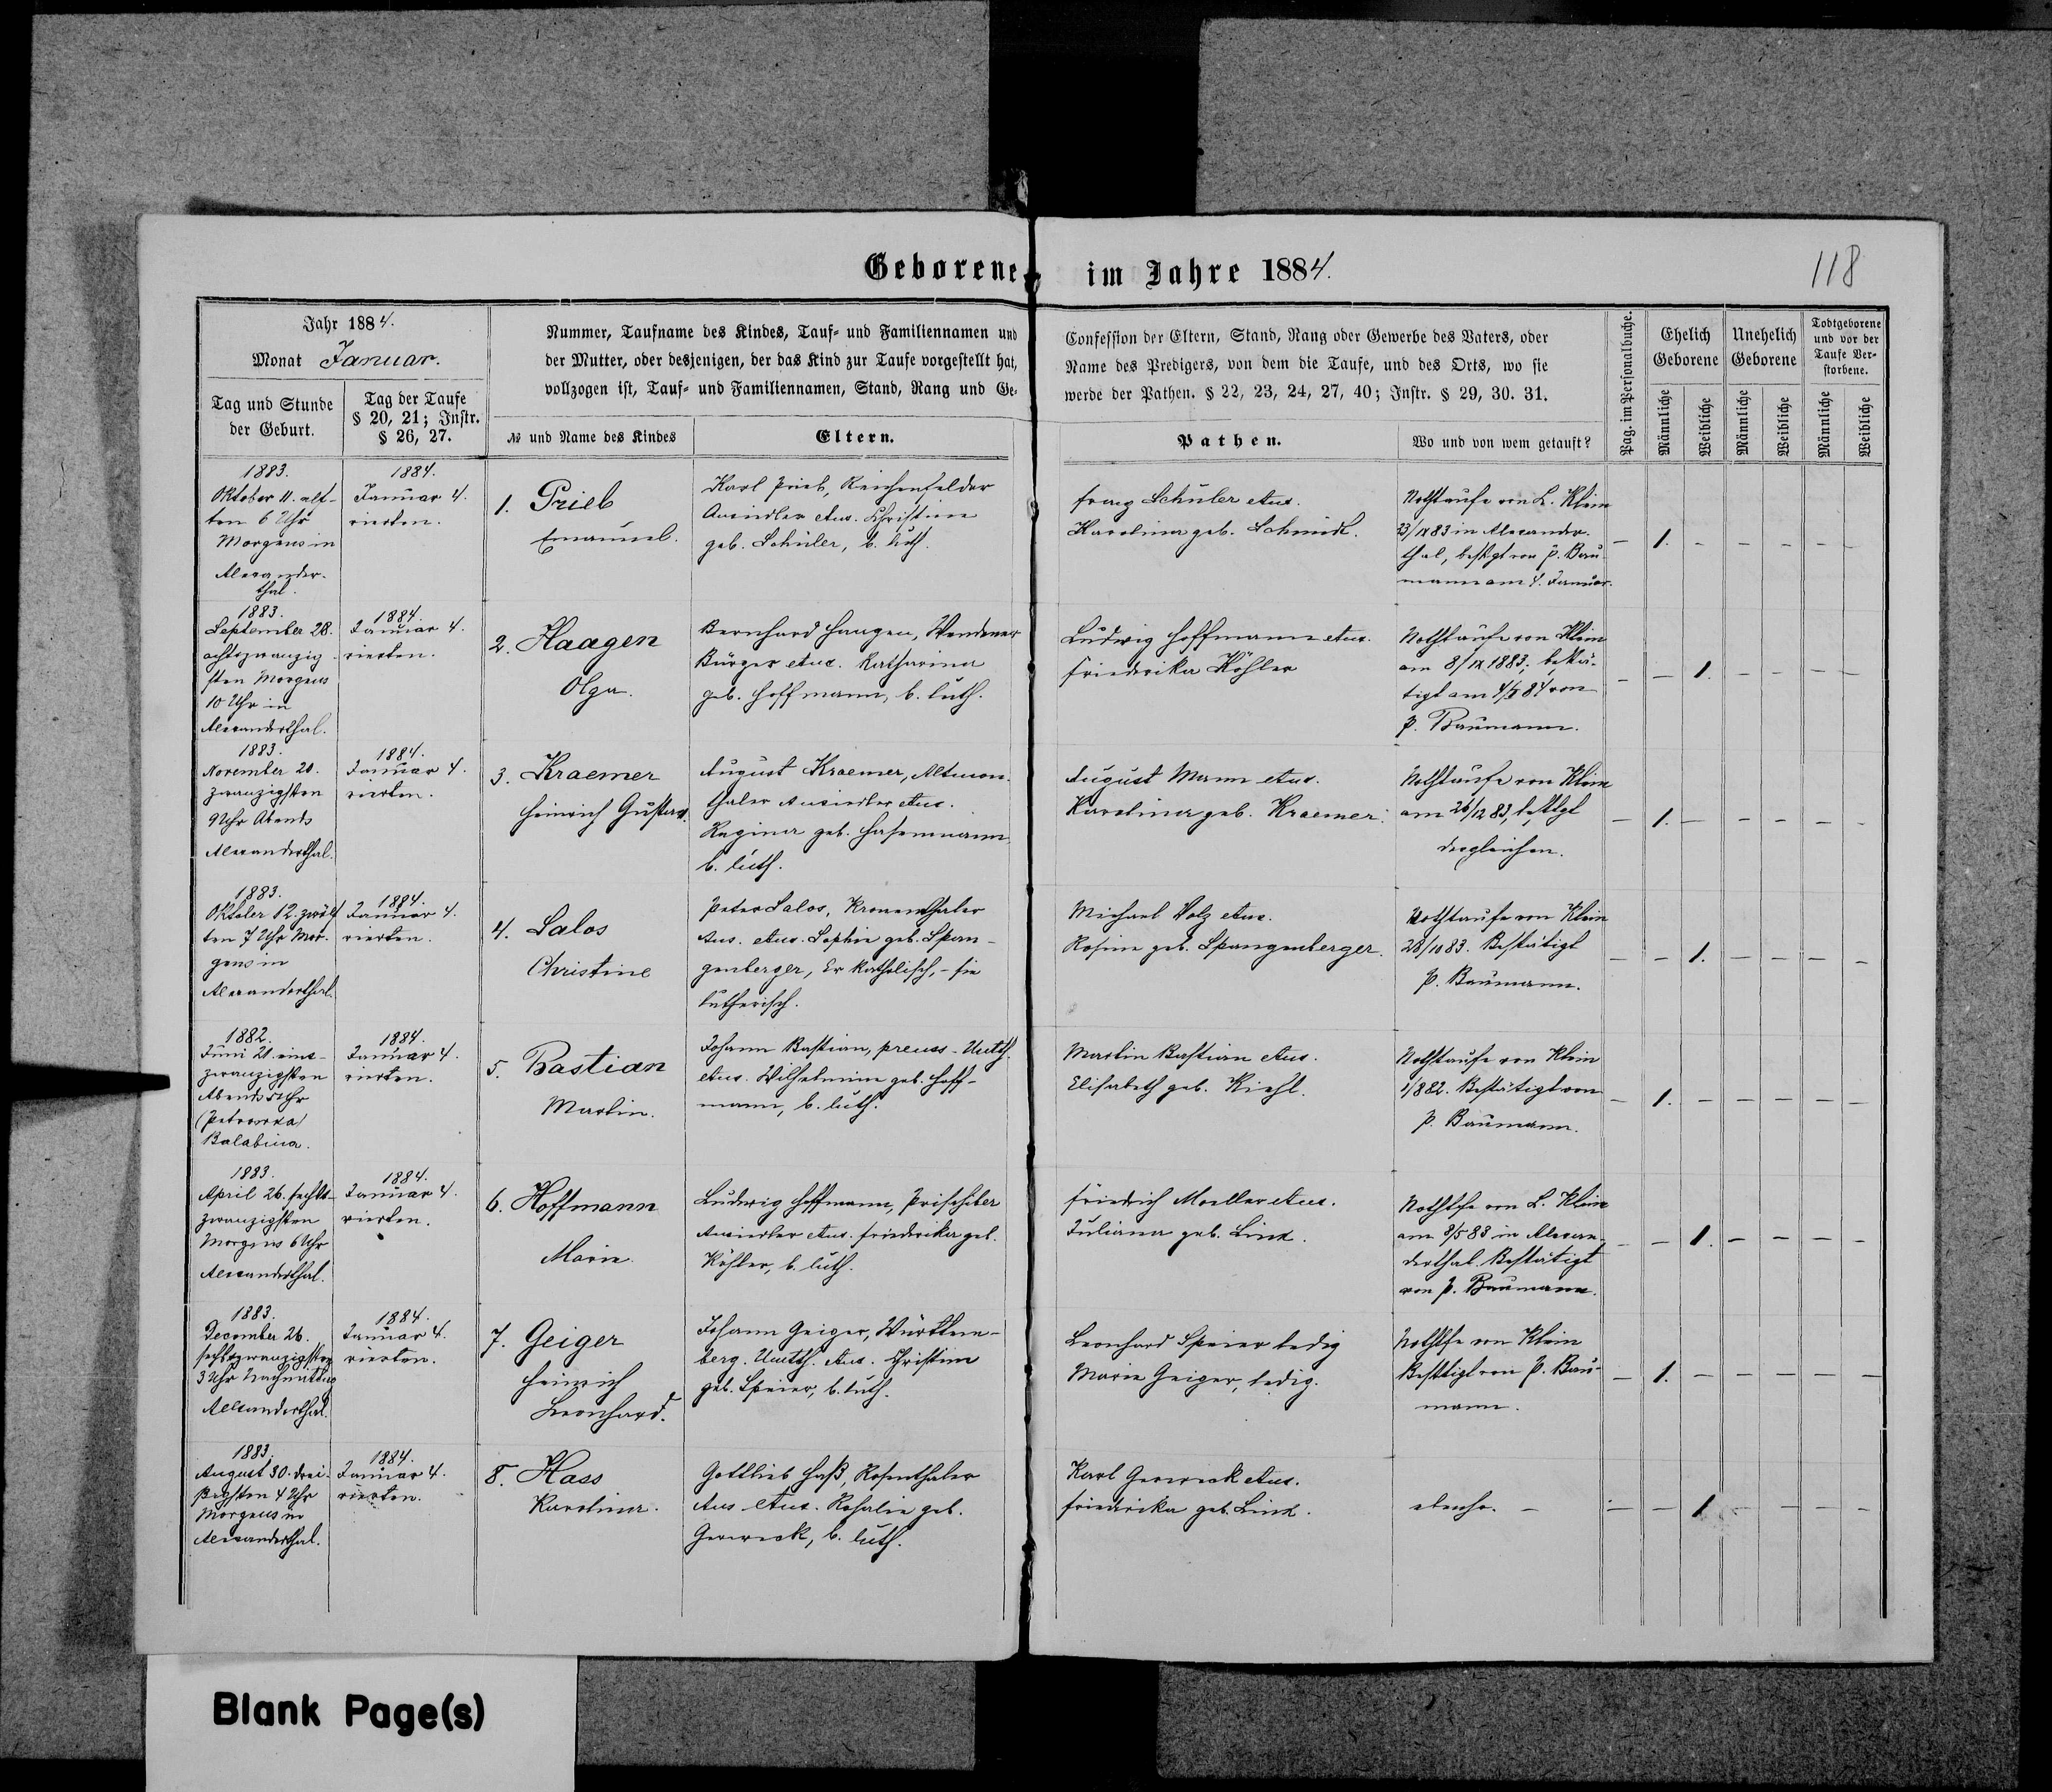 Geborene im Jahre 1884.
118
Jahr 1884.
Monat Januar.
Tag und Stunde
der Geburt.
Tag der Taufe
§ 20, 21; Instr.
§ 26, 27.
Nummer, Taufname des Kindes, Tauf- und Familiennamen und
der Mutter, oder desjenigen, der das Kind zur Taufe vorgestellt hat,
vollzogen ist, Tauf- und Familiennamen, Stand, Rang und Ge-
№ und Name des Kindes
Eltern.
Confession der Eltern, Stand, Rang oder Gewerbe des Vaters, oder
Name des Predigers, von dem die Taufe, und des Orts, wo sie
werde der Pathen. § 22, 23, 24, 27, 40; Instr. § 29, 30. 31.
Pathen.
Wo und von wem getauft?
Pag. im Personalbuche.
Ehelich
Geborene
Unehelich
Geborene
Todtgeborene
und vor der
Taufe Ver-
storbene.
Männliche
Weibliche
Männliche
Weibliche
Männliche
Weibliche
1883.
Oktober 11. elf-
ten 6 Uhr
Morgens in
Alexander-
thal.
1884.
Januar 4.
vierten.
1. Prieb
Emanuel.
Karl Prieb, Reichenfelder
Ansiedler Aus. Christine
geb. Schüler, b. luth.
Franz Schüler Aus.
Karolina geb. Schmidt.
Nothtaufe von L. Klein
in Alexander-
thal, bestgt von P. Bau
mann am 4. Januar.
— 1. - - - - -
1883.
September 28.
achtzwanzig-
sten Morgens
10 Uhr in
Alexanderthal.
1884.
Januar 4.
vierten.
2. Haagen
Olga.
Bernhard Haagen, Wendener
Bürger Aus. Katharina
geb. Hoffmann, b. luth.
Ludwig Hoffmann Aus.
Friederika Köhler
Nothtaufe von Klein
am 1883; bestä-
tigt am von
P. Baumann.
- — 1. — - — —
1883.
November 20.
zwanzigsten
9 Uhr Abends
Alexanderthal.
1884.
Januar 4.
vierten.
3. Kraemer
Heinrich Gustav.
August Kraemer, Altmon-
thaler Ansiedler Aus.
Regina geb. Hasenmann
b. luth.
August Mann Aus.
Karolina geb. Kraemer.
Nothtaufe von Klein
am 26/12 83, bestgt
desgleichen.
— 1. — - - - -
1883.
Oktober 12. zwölf
ten 7 Uhr Mor-
gens in
Alexanderthal
1884.
Januar 4.
vierten.
4. Salos
Christine
Peter Salos, Kronenthaler
Ans. Aus. Sophie geb. Span-
genberger, Er katholisch, - sie
lutherisch.
Michael Volz Aus.
Rosine geb. Spangenberger.
Nothtaufe von Klein
28/10 83. Bestätigt
P. Baumann.
— — 1. — — — -
1882.
Juni 21. eins-
zwanzigsten
Abends 5 Uhr
(Petrowka)
Balabina.
1884.
Januar 4.
vierten.
5. Bastian
Martin.
Johann Bastian, preuss. Unth.
Aus. Wilhelmine geb. Hoff-
mann, b. luth.
Martin Bastian Aus.
Elisabeth geb. Kiehl.
Nothtaufe von Klein
1/8 82. Bestätigt von
P. Baumann.
— 1. — — — — —
1883.
April 26. sechs-
zwanzigsten
Morgens 6 Uhr
Alexanderthal.
1884.
Januar 4.
vierten.
6. Hoffmann
Marie.
Ludwig Hoffmann, Prischiber
Ansiedler Aus. Friederika geb.
Köhler, b. luth.
Friedrich Moeller Aus.
Juliana geb. Link.
Nothtfe von L. Klein
am 8/5 83 in Alexan-
derthal. Bestätigt
von P. Baumann.
- — 1. — — — -
1883.
December 26.
sechszwanzigsten
3 Uhr Nachmittag
Alexanderthal.
1884.
Januar 4.
vierten.
7. Geiger
Heinrich
Leonhard.
Johann Geiger, Württem-
berg. Unth. Aus. Christine
geb. Speier, b. luth.
Leonhard Speier ledig
Marie Geiger, ledig.
Nothtfe von Klein
Besttigt von P. Bau-
mann.
— 1. — — — — —
1883.
August 30. drei-
ßigsten 4 Uhr
Morgens in
Alexanderthal.
1884.
Januar 4.
vierten.
8. Hass
Karolina.
Gottlieb Haß, Rosenthaler
Ans Aus. Rosalie geb.
Gerweck, b. luth.
Karl Gerweck Aus.
Friederika geb. Link.
ebenso. —
— — 1 - — — —
Blank Page(s)